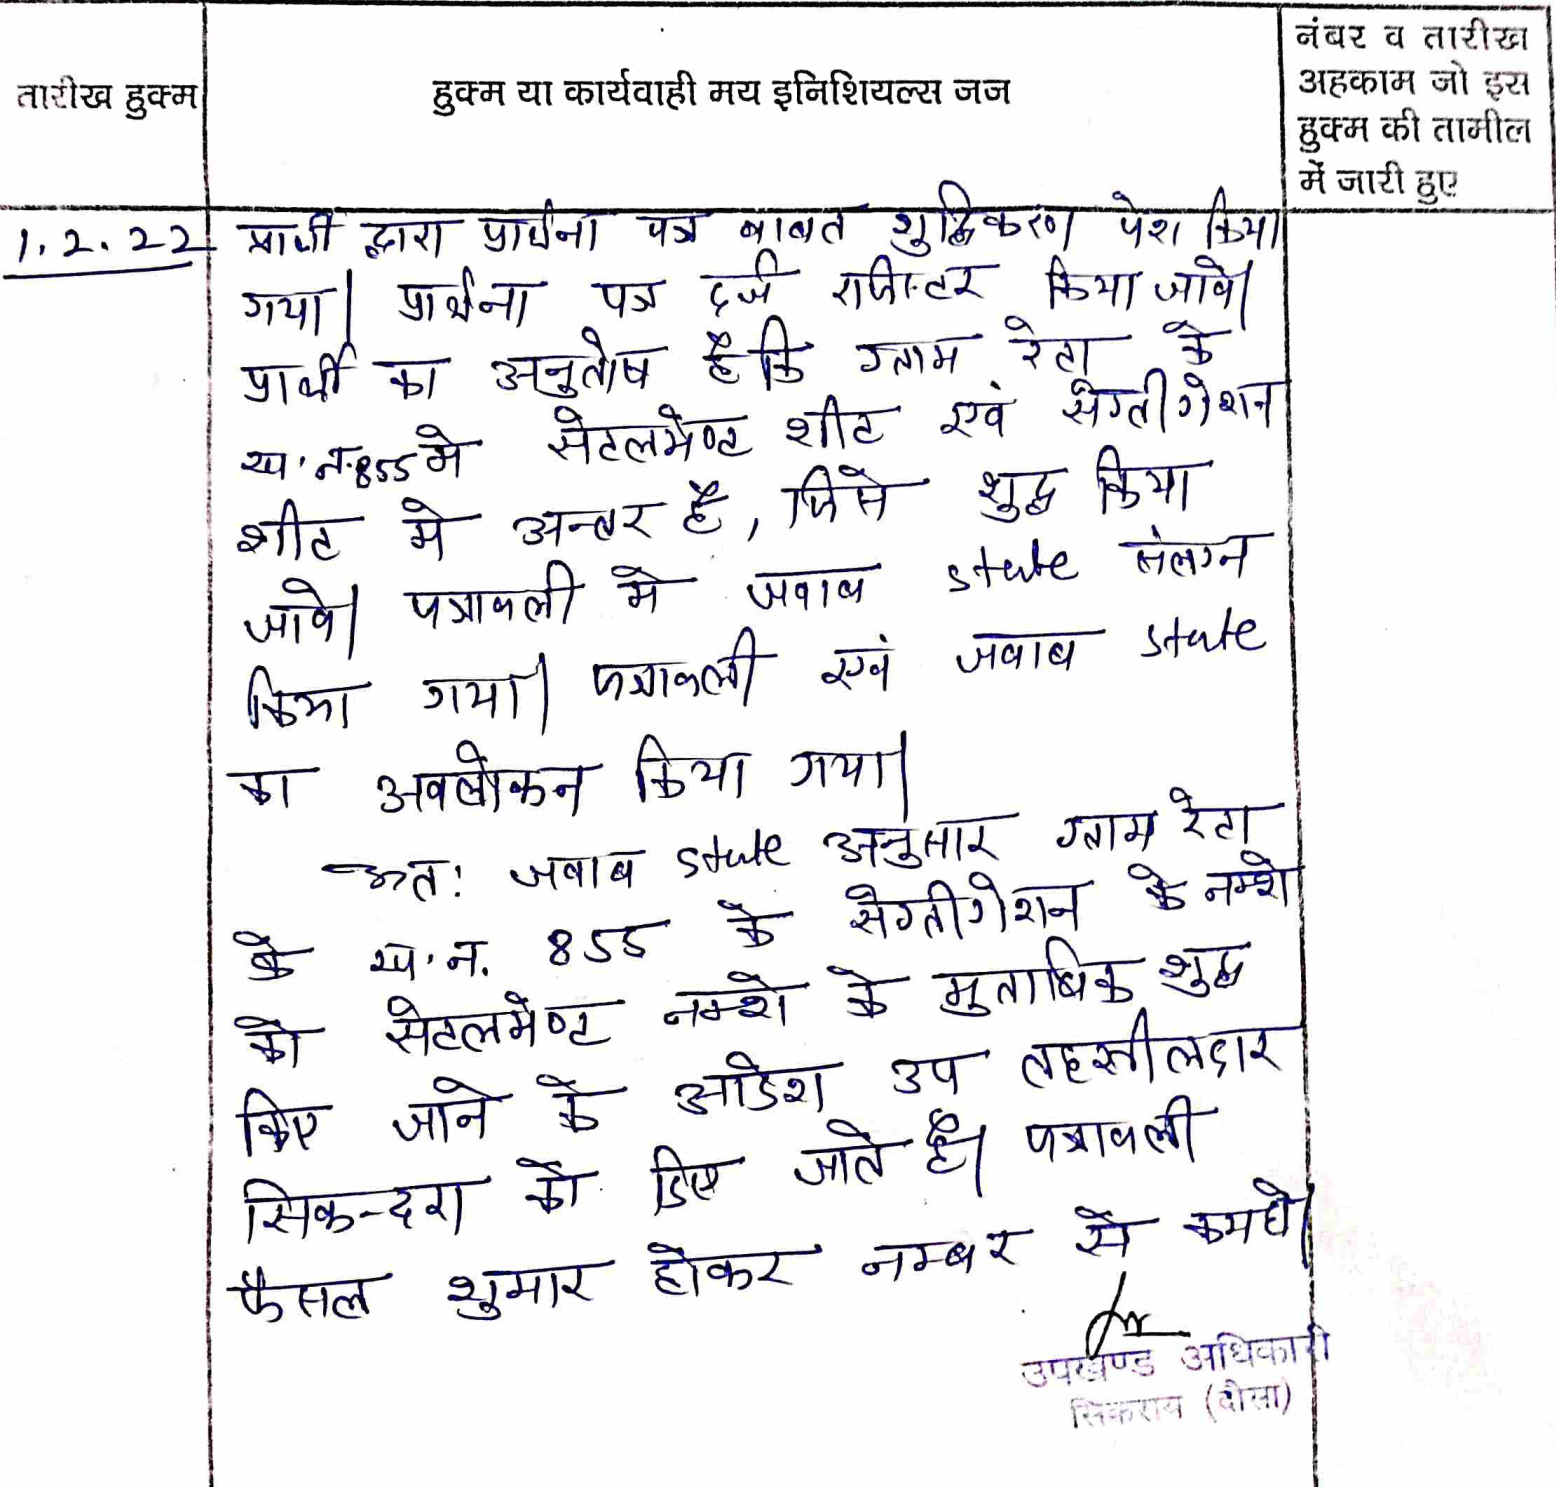 तारीख हुक्म
हुक्म या कार्यवाही मय इनिशियल्स जज
नंबर व तारीख
अहकाम जो इस
हुक्म की तामील
में जारी हुए
1.2.22
प्रार्थी द्वारा प्रार्थना पत्र बाबत शुद्धिकरण पेश किया
गया। प्रार्थना पत्र दर्ज रजिस्टर किया जावे।
प्रार्थी का अनुतोष है कि ग्राम रेटा के
ख.न.855 मे सेटलमेण्ट शीट एवं सेग्रीगेशन
शीट मे अन्तर है, जिसे शुद्ध किया
जावे। पत्रावली मे जवाब state संलग्न
किया गया। पत्रावली एवं जवाब state
का अवलोकन किया गया।
अत: जवाब state अनुसार ग्राम रेटा
के ख.न. 855 के सेग्रीगेशन के नक्शे
को सेटलमेण्ट नक्शे के मुताबिक शुद्ध
किए जाने के आदेश उप तहसीलदार
सिकन्दरा को दिए जाते है। पत्रावली
फैसल शुमार होकर नम्बर से कमहो।
उपखण्ड अधिकारी
सिकराय (दौसा)